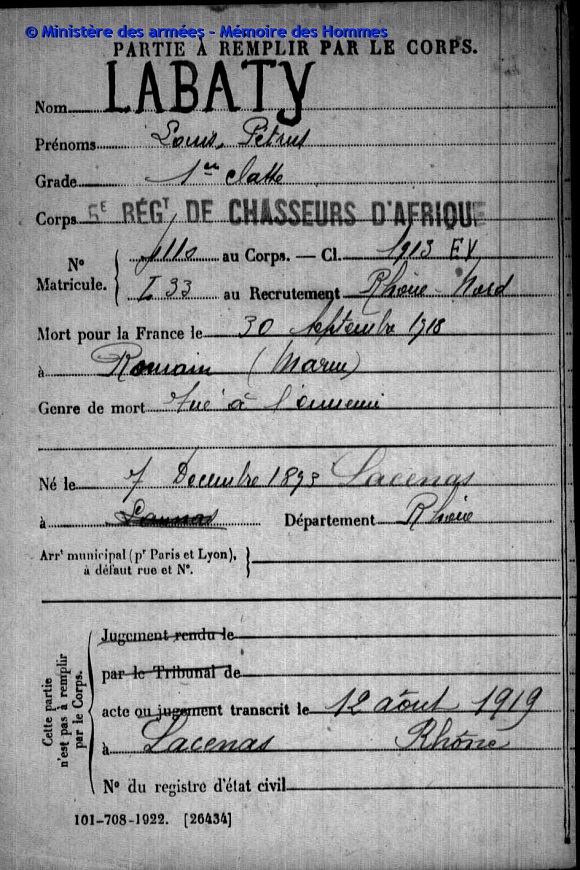 © Ministère des armées - Mémoire des Hommes
PARTIE À REMPLIR PAR LE CORPS.
Nom LABATY
Prénoms Louis, Pétrus
Grade 1re classe
Corps 5E RÉGT DE CHASSEURS D'AFRIQUE
No Matricule. au Corps. — Cl. 1913 EV
I 33 au Recrutement Rhône-Nord
Mort pour la France le 30 Septembre 1918
à Romain (Marne)
Genre de mort Tué à l'ennemi
Né le 7 Décembre 1893 Lacenas
à Département Rhône
Arrt municipal (pr Paris et Lyon),
à défaut rue et No.
Cette partie
n'est pas à remplir
par le Corps.
Jugement rendu le
par le Tribunal de
acte ou jugement transcrit le 12 août 1919
à Lacenas Rhône
No du registre d'état civil
101-708-1922. [26434]